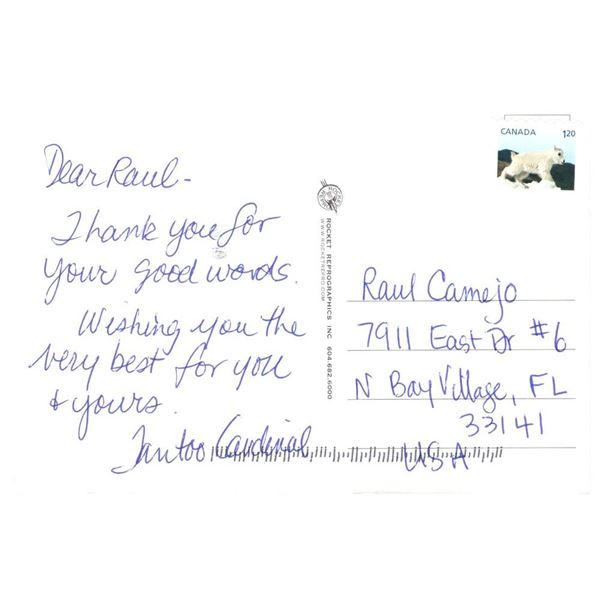 Dear Raul -
Thank you for
your good words.
Wishing you the
very best for you
& yours.
Tantoo Cardinal
CANADA 1.20
ROCKET REPROGRAPHICS INC 604.682.6000
WWW.ROCKETREPRO.COM
Raul Camejo
7911 East Dr #6
N Bay Village, FL
33141
USA